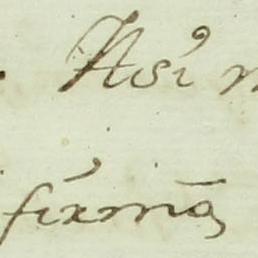 Asi
firmā